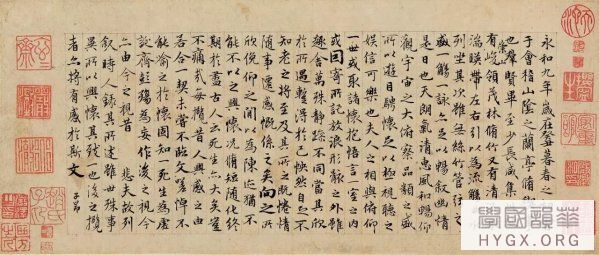 永和九年歲在癸丑暮春之
于會稽山陰之蘭亭脩禊
也群賢畢至少長咸集
有崇領茂林脩竹又有清
湍暎帶左右引以為流觴
列坐其次雖無絲竹管弦之
盛一觴一詠亦足以暢叙幽情
是日也天朗氣清惠風和暢仰
觀宇宙之大俯察品類之盛
所以遊目騁懷足以極視聽之
娛信可樂也夫人之相與俯仰
一世或取諸懷抱悟言一室之內
或因寄所託放浪形骸之外雖
趣舍萬殊靜躁不同當其欣
於所遇暫得於己怏然自足不
知老之將至及其所之既惓情
隨事遷感慨係之矣向之所
欣俛仰之間以為陳迹猶不
能不以之興懷況脩短隨化終
期於盡古人云死生亦大矣豈
不痛哉每攬昔人興感之由
若合一契未嘗不臨文嗟悼不
能喻之於懷固知一死生為虛
誕齊彭殤為妄作後之視今
亦由今之視昔悲夫故列
叙時人錄其所述雖世殊事
異所以興懷其致一也後之攬
者亦將有感於斯文
子昂
學國韻華
HYGX.ORG